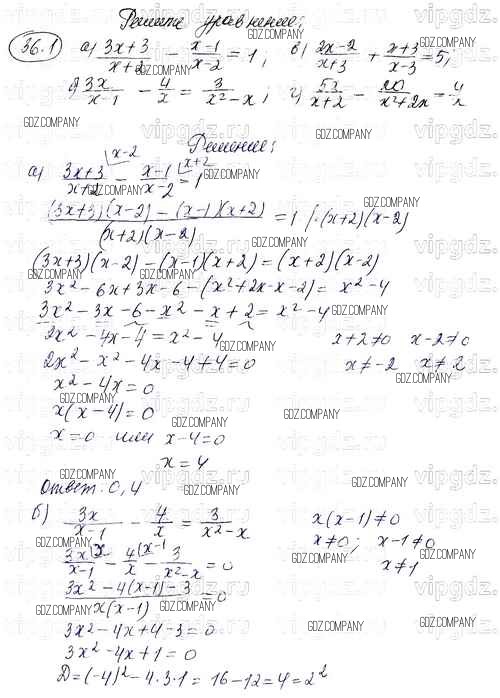 Решите уравнение:
36.1 а) (3x+3)/(x+2) − (x−1)/(x−2) = 1; в) (2x−2)/(x+3) + (x+3)/(x−3) = 5;
б) 3x/(x−1) − 4/x = 3/(x²−x); г) /(x+2) − /(x²+2x) = 4/
Решение:
а) (3x+3)/(x+2) ⌊x−2 − (x−1)/(x−2) ⌊x+2 = 1
((3x+3)(x−2) − (x−1)(x+2))/((x+2)(x−2)) = 1 | ·(x+2)(x−2)
(3x+3)(x−2) − (x−1)(x+2) = (x+2)(x−2)
3x² − 6x + 3x − 6 − (x² + 2x − x − 2) = x² − 4
3x² − 3x − 6 − x² − x + 2 = x² − 4
2x² − 4x − 4 = x² − 4 x+2≠0 x−2≠0
2x² − x² − 4x − 4 + 4 = 0 x≠−2 x≠2
x² − 4x = 0
x(x−4) = 0
x = 0 или x−4=0
x = 4
Ответ: 0, 4
б) 3x/(x−1) − 4/x = 3/(x²−x) x(x−1)≠0
x≠0; x−1≠0
3x/(x−1) ⌊x − 4/x ⌊x−1 − 3/(x²−x) = 0 x≠1
(3x² − 4(x−1) − 3)/(x(x−1)) = 0
3x² − 4x + 4 − 3 = 0
3x² − 4x + 1 = 0
D = (−4)² − 4·3·1 = 16 − 12 = 4 = 2²
GDZ.COMPANY
vipgdz.ru